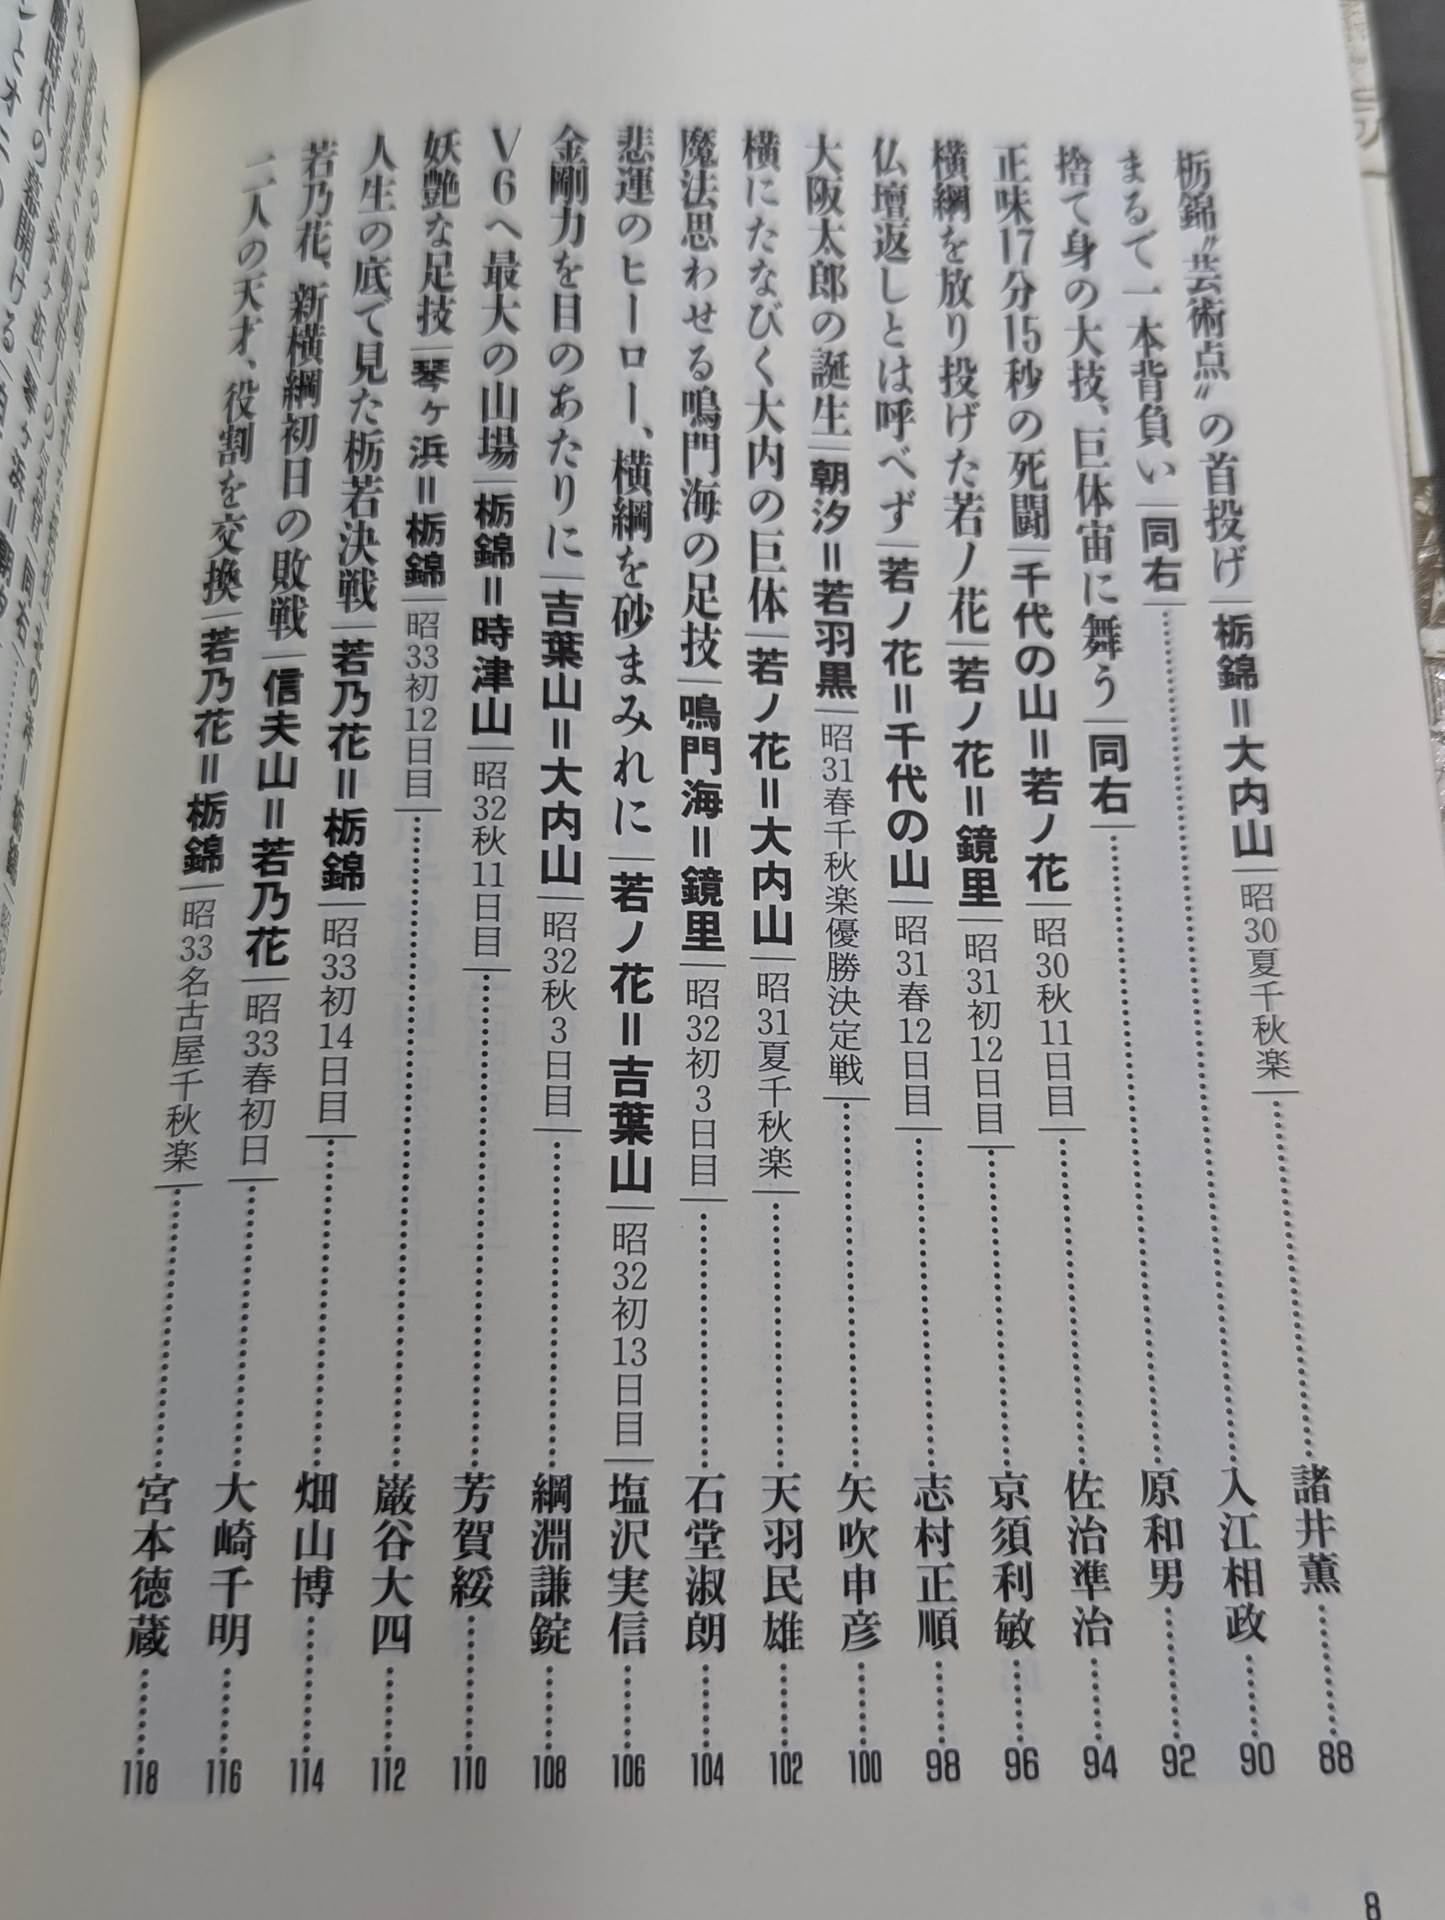 栃錦〝芸術点〟の首投げ│栃錦＝大内山│昭30夏千秋楽│………諸井薫………88
まるで一本背負い│同右│………入江相政………90
捨て身の大技、巨体宙に舞う│同右│………原和男………92
正味17分15秒の死闘│千代の山＝若ノ花│昭30秋11日目│………佐治準治………94
横綱を放り投げた若ノ花│若ノ花＝鏡里│昭31初12日目│………京須利敏………96
仏壇返しとは呼べず│若ノ花＝千代の山│昭31春12日目│………志村正順………98
大阪太郎の誕生│朝汐＝若羽黒│昭31春千秋楽優勝決定戦│………矢吹申彦………100
横にたなびく大内の巨体│若ノ花＝大内山│昭31夏千秋楽│………天羽民雄………102
魔法思わせる鳴門海の足技│鳴門海＝鏡里│昭32初3日目│………石堂淑朗………104
悲運のヒーロー、横綱を砂まみれに│若ノ花＝吉葉山│昭32初13日目│塩沢実信………106
金剛力を目のあたりに│吉葉山＝大内山│昭32秋3日目│………綱淵謙錠………108
V6へ最大の山場│栃錦＝時津山│昭32秋11日目│………芳賀綏………110
妖艶な足技│琴ヶ浜＝栃錦│昭33初12日目│………巌谷大四………112
人生の底で見た栃若決戦│若乃花＝栃錦│昭33初14日目│………畑山博………114
若乃花、新横綱初日の敗戦│信夫山＝若乃花│昭33春初日│………大崎千明………116
二人の天才、役割を交換│若乃花＝栃錦│昭33名古屋千秋楽│………宮本徳蔵………118
8